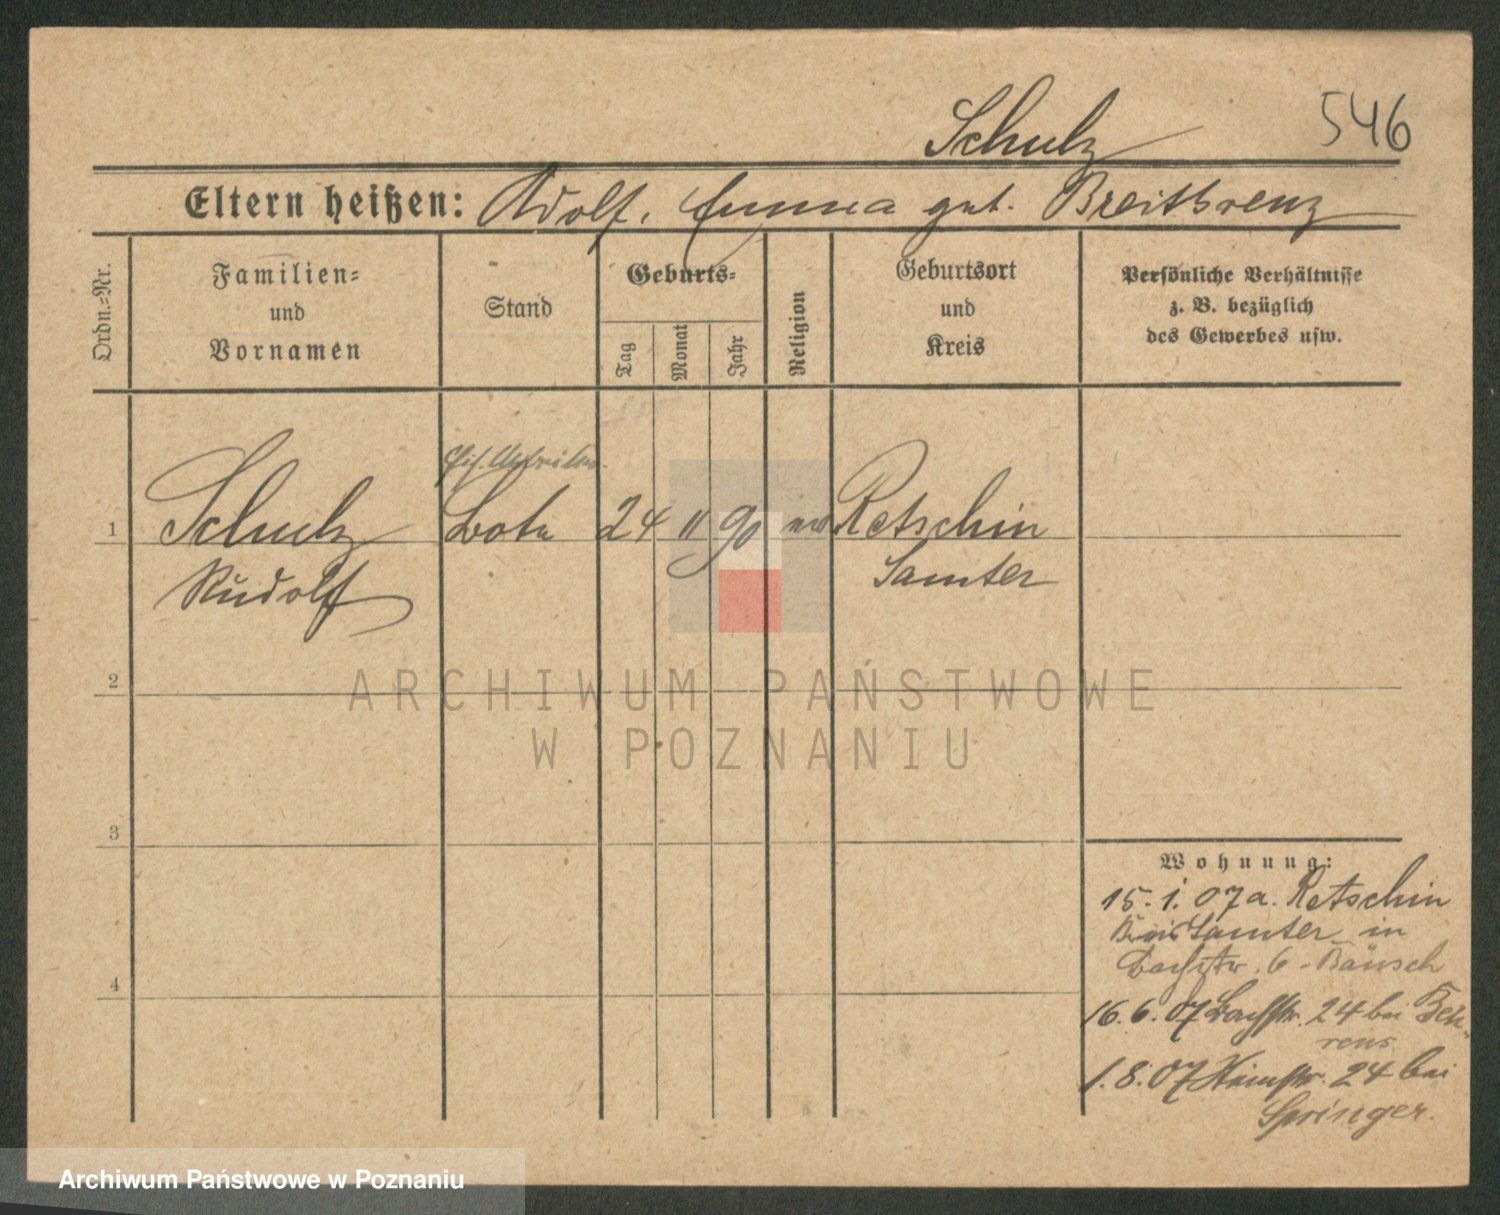 Schulz 546
Eltern heißen: Adolf, Emma geb. Breitkrenz
Ordn.=Nr.
Familien=
und
Vornamen
Stand
Geburts=
Tag
Monat
Jahr
Religion
Geburtsort
und
Kreis
Persönliche Verhältnisse
z. B. bezüglich
des Gewerbes usw.
1 Schulz Bote 24 11 90 Retschin
Rudolf Samter
2
3
4
Wohnung:
15. 1. 07 a. Retschin
Kreis Samter in
Bachstr. 6 - Bäusch
16. 6. 07 Bachstr. 24 bei Beh-
rens
1. 8. 07 24 bei
Springer.
ARCHIWUM PAŃSTWOWE
W POZNANIU
Archiwum Państwowe w Poznaniu